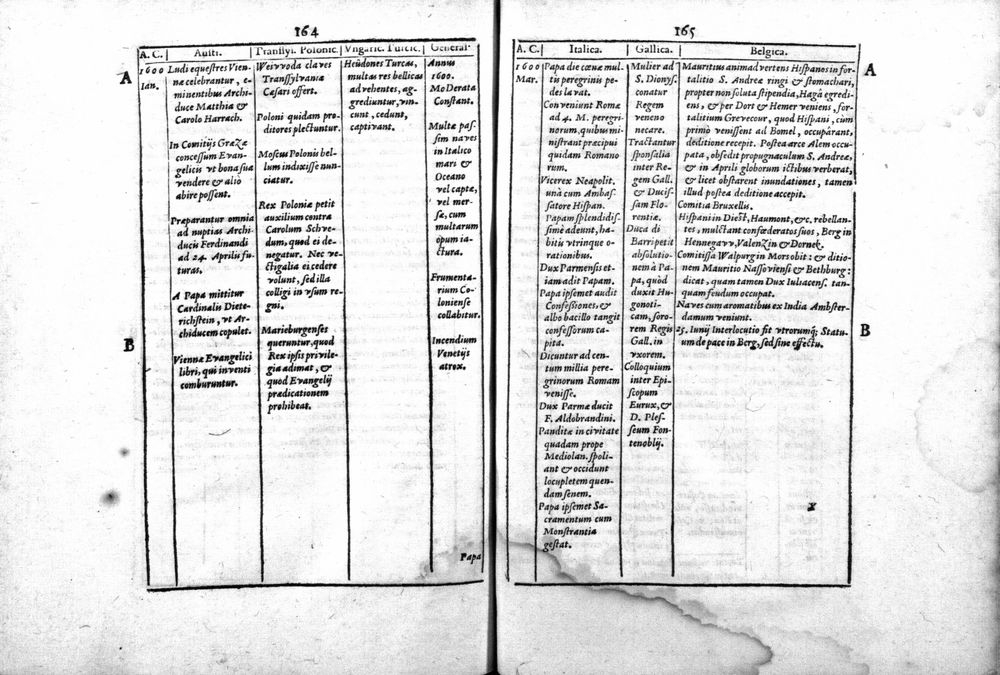 164
A. C.
Austi.
Transsyl. Polonic.
Vngaric. Turcic.
General.
A
1600
Ian.
Ludi equestres Vien-
næ celebrantur, e-
minentibus Archi-
duce Matthia &
Carolo Harrach.
In Comitijs Græzæ
concessum Evan-
gelicis vt bona sua
vendere & alio
abire possent.
Præparantur omnia
ad nuptias Archi-
ducis Ferdinandi
ad 24. Aprilis fu-
turas.
A Papa mittitur
Cardinalis Diete-
richstein, vt Ar-
chiducem copulet.
B
Viennæ Evangelici
libri, qui inventi
comburuntur.
Weivvoda claves
Transsylvaniæ
Cæsari offert.
Poloni quidam pro-
ditores plectuntur.
Moscus Polonis bel-
lum indixisse nun-
ciatur.
Rex Poloniæ petit
auxilium contra
Carolum Schve-
dum, quod ei de-
negatur. Nec ve-
ctigalia ei cedere
volunt, sed illa
colligi in vsum re-
gni.
Marieburgenses
queruntur, quod
Rex ipsis privile-
gia adimat, &
quod Evangelij
prædicationem
prohibeat.
Heüdones Turcas,
multas res bellicas
advehentes, ag-
grediuntur, vin-
cunt, cedunt,
captivant.
Annus
1600.
Moderata
Constant.
Multæ pas-
sim naves
in Italico
mari &
Oceano
vel captæ,
vel mer-
sæ, cum
multarum
opum ia-
ctura.
Frumenta-
rium Co-
loniense
collabitur.
Incendium
Venetijs
atrox.
Papa
165
A. C.
Italica.
Gallica.
Belgica.
A
1600
Mar.
Papa die cœnæ mul-
tis peregrinis pe-
des lavat.
Conveniunt Romæ
ad 4. M. peregri-
norum, quibus mi-
nistrant præcipui
quidam Romano
rum.
Vicerex Neapolit.
unà cum Ambas-
satore Hispan.
Papam splendidis-
simè adeunt, ha-
bitis vtrinque o-
rationibus.
Dux Parmensis et-
iam adit Papam.
Papa ipsemet audit
Confessiones, &
albo bacillo tangit
confessorum ca-
pita.
Dicuntur ad cen-
tum millia pere-
grinorum Romam
venisse.
Dux Parmæ ducit
F. Aldobrandini.
Panditæ in civitate
quadam prope
Mediolan. spoli-
ant & occidunt
locupletem quen-
dam senem.
Papa ipsemet Sa-
cramentum cum
Monstrantia
gestat.
Mulier ad
S. Dionys.
conatur
Regem
veneno
necare.
Tractantur
sponsalia
inter Re-
gem Gall.
& Ducis-
sam Flo-
rentiæ.
Duca di
Barri petit
absolutio-
nem à Pa-
pa, quòd
duxit Hu-
gonoti-
cam, soro-
rem Regis
Gall. in
vxorem.
Colloquium
inter Epi-
scopum
Eurux, &
D. Ples-
seum Fon-
tenoblij.
Mauritius animadvertens Hispanos in for-
talitio S. Andreæ ringi & stomachari,
propter non soluta stipendia, Hagâ egredi-
ens, & per Dort & Hemer veniens, for-
talitium Grevecour, quod Hispani, cùm
primò venissent ad Bomel, occupârant,
deditione recepit. Postea arce Alem occu-
pata, obsedit propugnaculum S. Andreæ,
& in Aprili globorum ictibus verberat,
& licet obstarent inundationes, tamen
illud postea deditione accepit.
Comitia Bruxellis.
Hispani in Diest, Haumont, &c. rebellan-
tes, mulctant confœderatos suos, Berg in
Hennegavv, Valenzin & Dornek.
Comitissa Walpurg in Mors obit: & ditio-
nem Mauritio Nassoviensi & Bethburg:
dicat, quam tamen Dux Iuliacens. tan-
quam feudum occupat.
Naves cum aromatibus ex India Ambster-
damum veniunt.
B
25. Iunij Interlocutio fit vtrorumq; Statu-
um de pace in Berg, sed sine effectu.
X